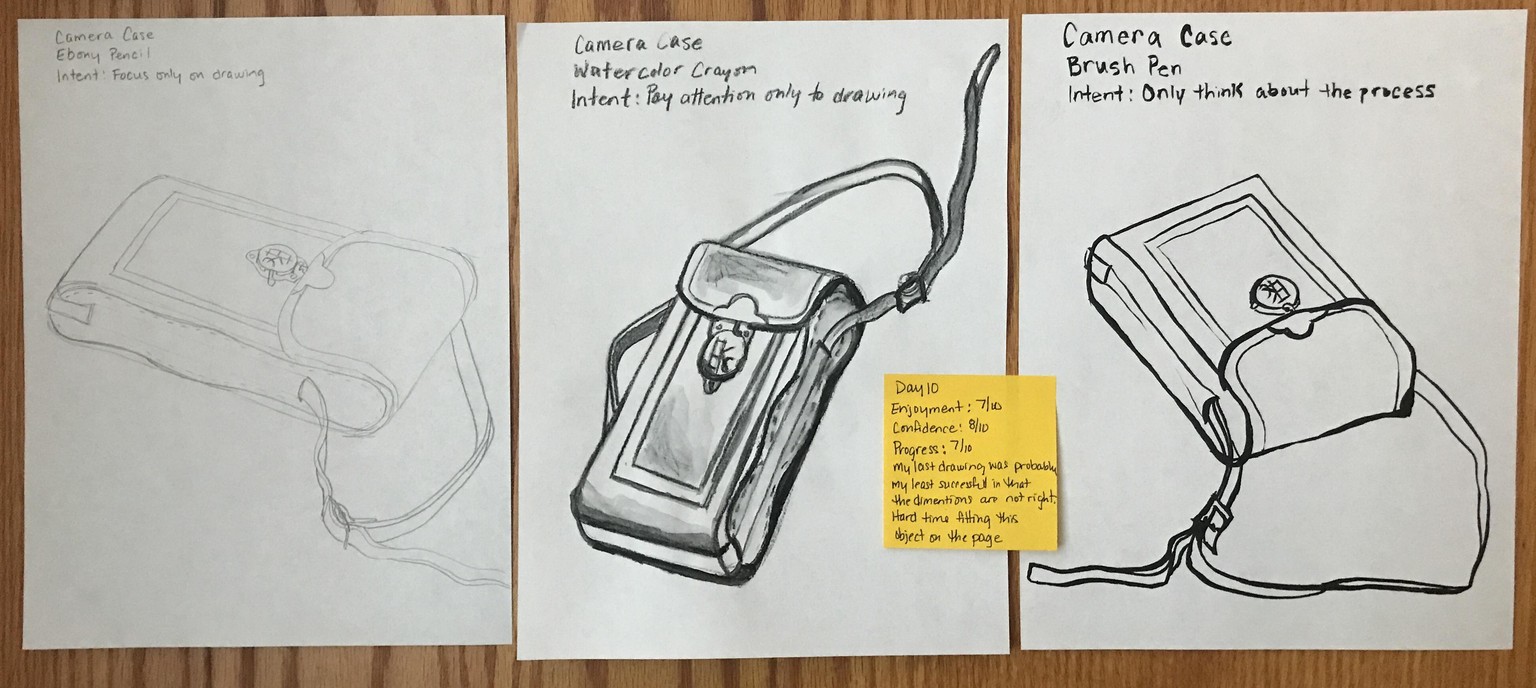 Camera Case
Ebony Pencil
Intent: Focus only on drawing
Camera Case
Watercolor Crayon
Intent: Pay attention only to drawing
Day 10
Enjoyment: 7/10
Confidence: 8/10
Progress: 7/10
my last drawing was probably
my least successfull in that
the dimentions are not right.
Hard time fitting this
object on the page
Camera Case
Brush Pen
Intent: Only think about the process